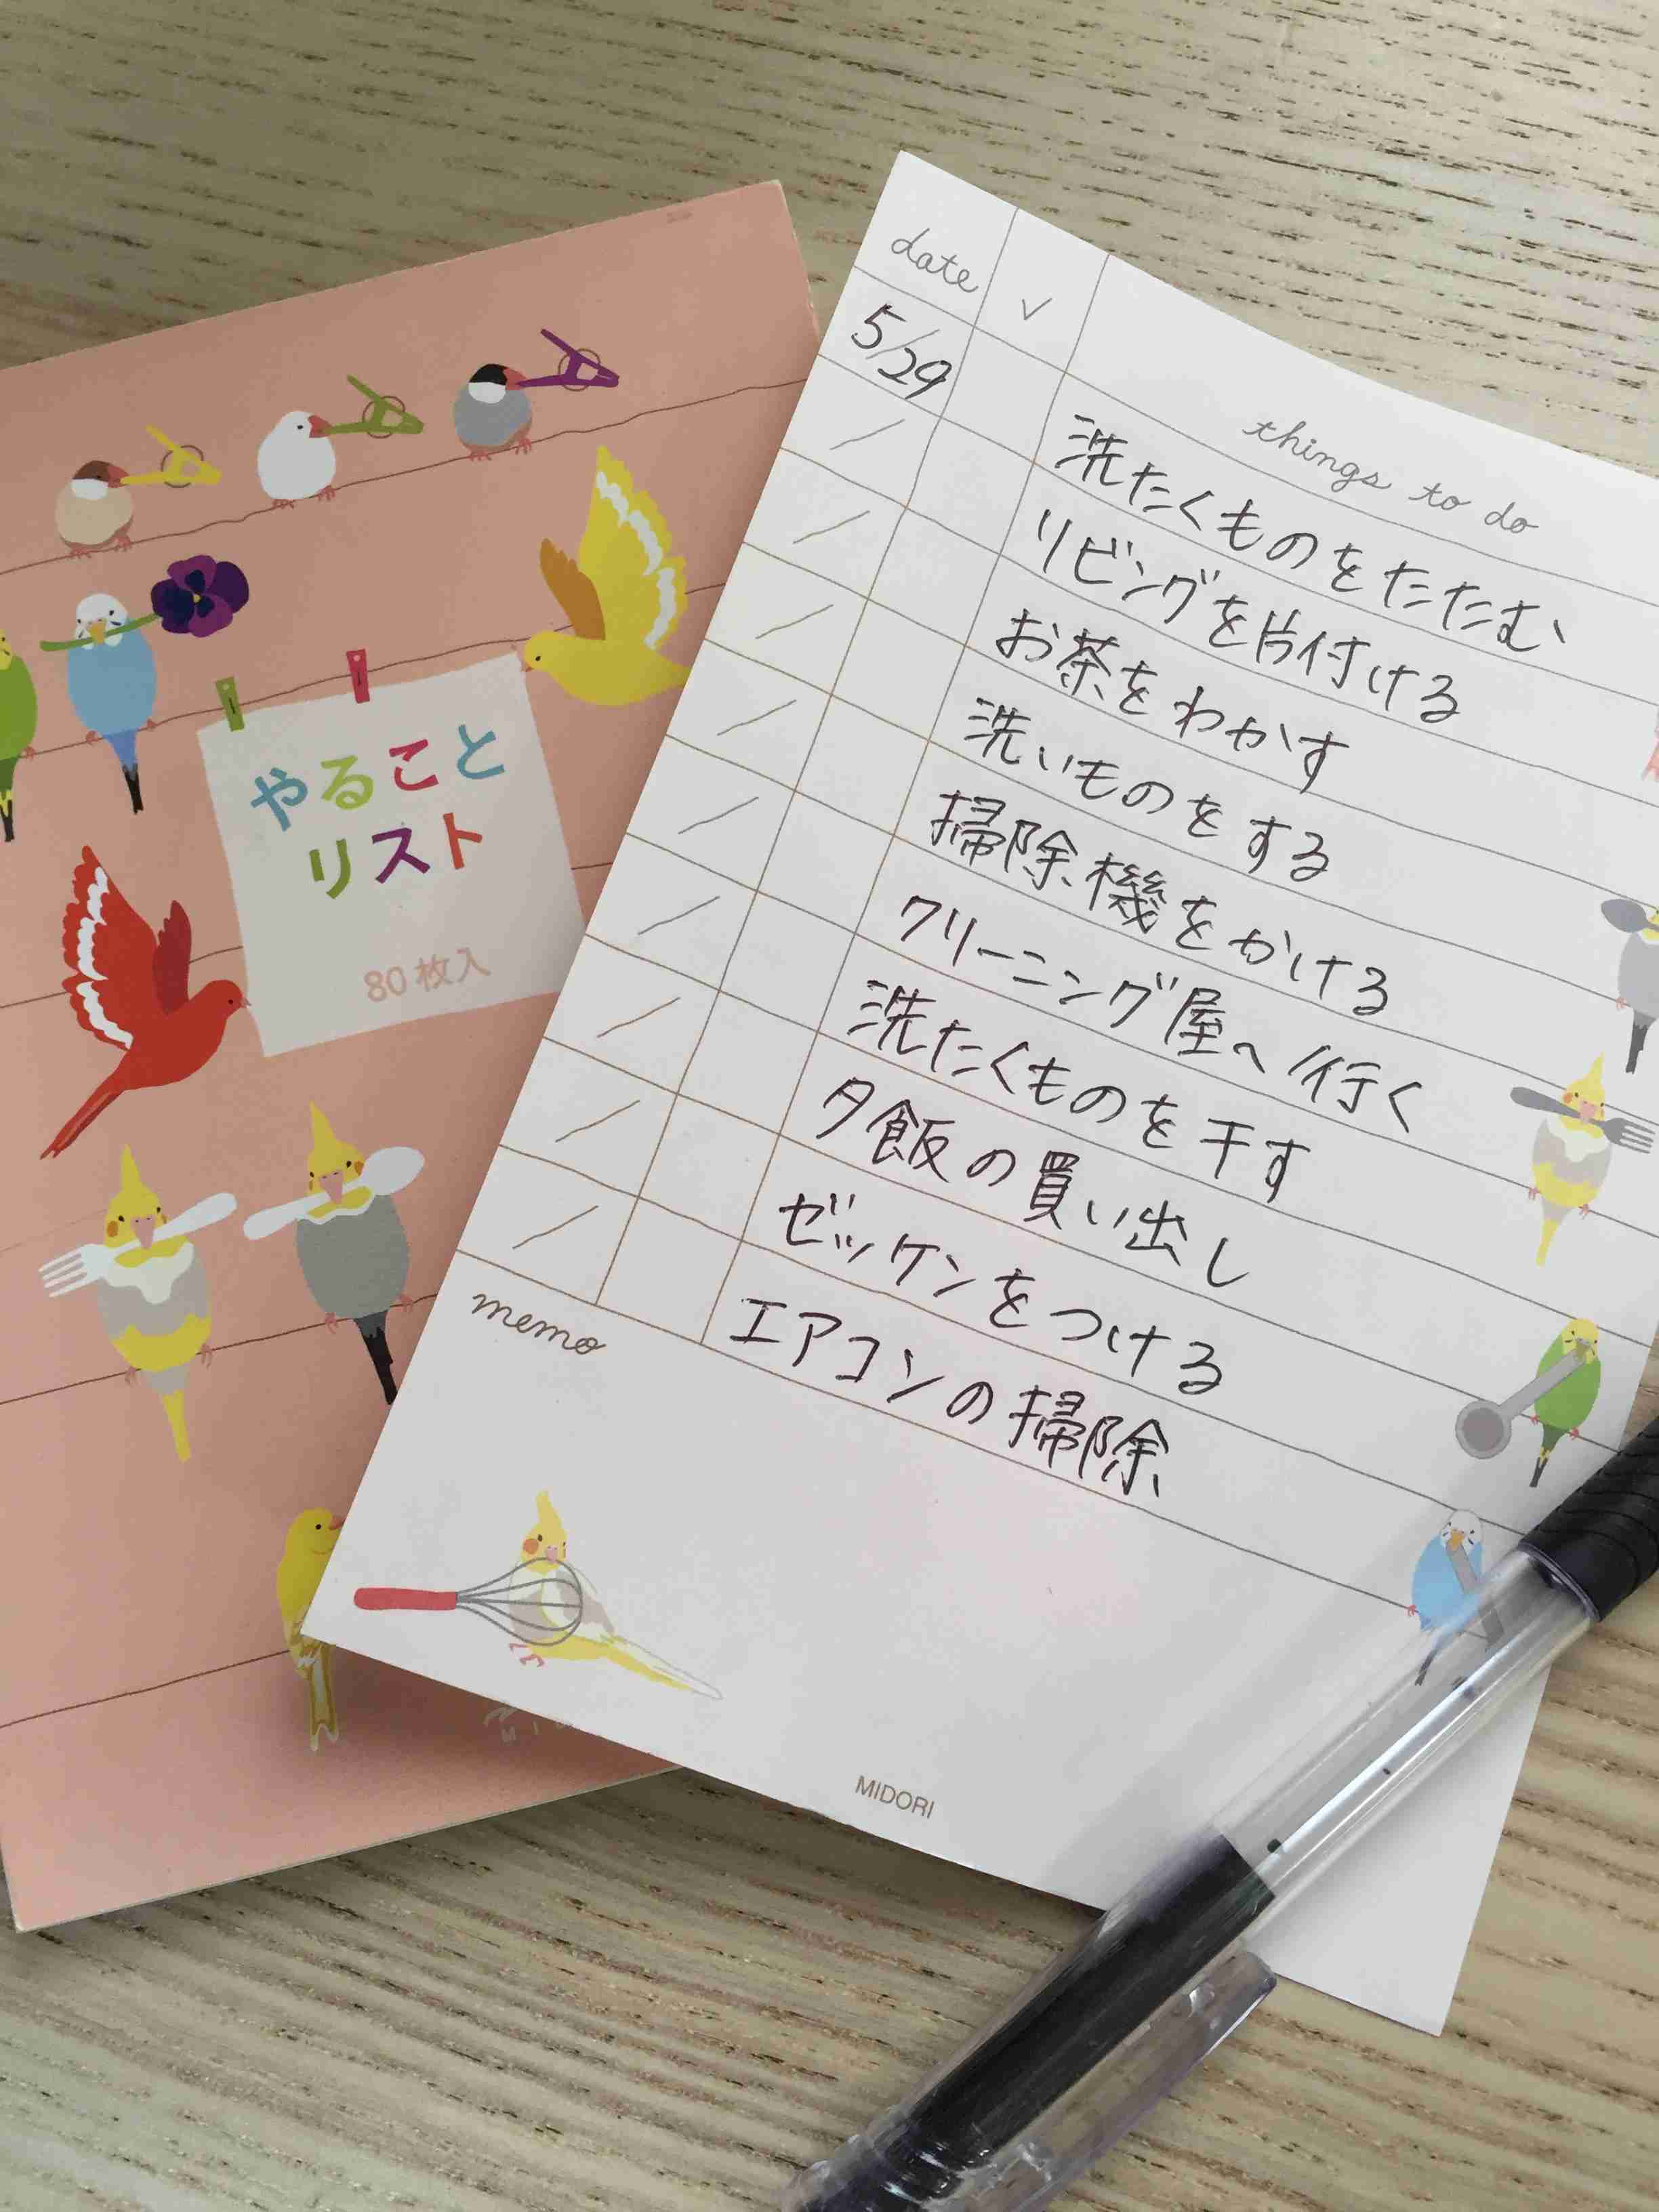 やること
リスト
80枚入
date ✓ things to do
5/29 洗たくものをたたむ
リビングを片付ける
お茶をわかす
洗いものをする
掃除機をかける
クリーニング屋へ行く
洗たくものを干す
夕飯の買い出し
ゼッケンをつける
エアコンの掃除
memo
MIDORI